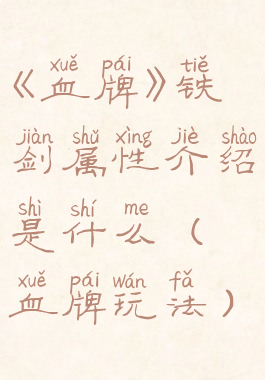 xuě pái tiě
《血牌》铁
jiàn shǔ xìng jiè shào
剑属性介绍
shì shí me
是什么（
xuě pái wán fǎ
血牌玩法）